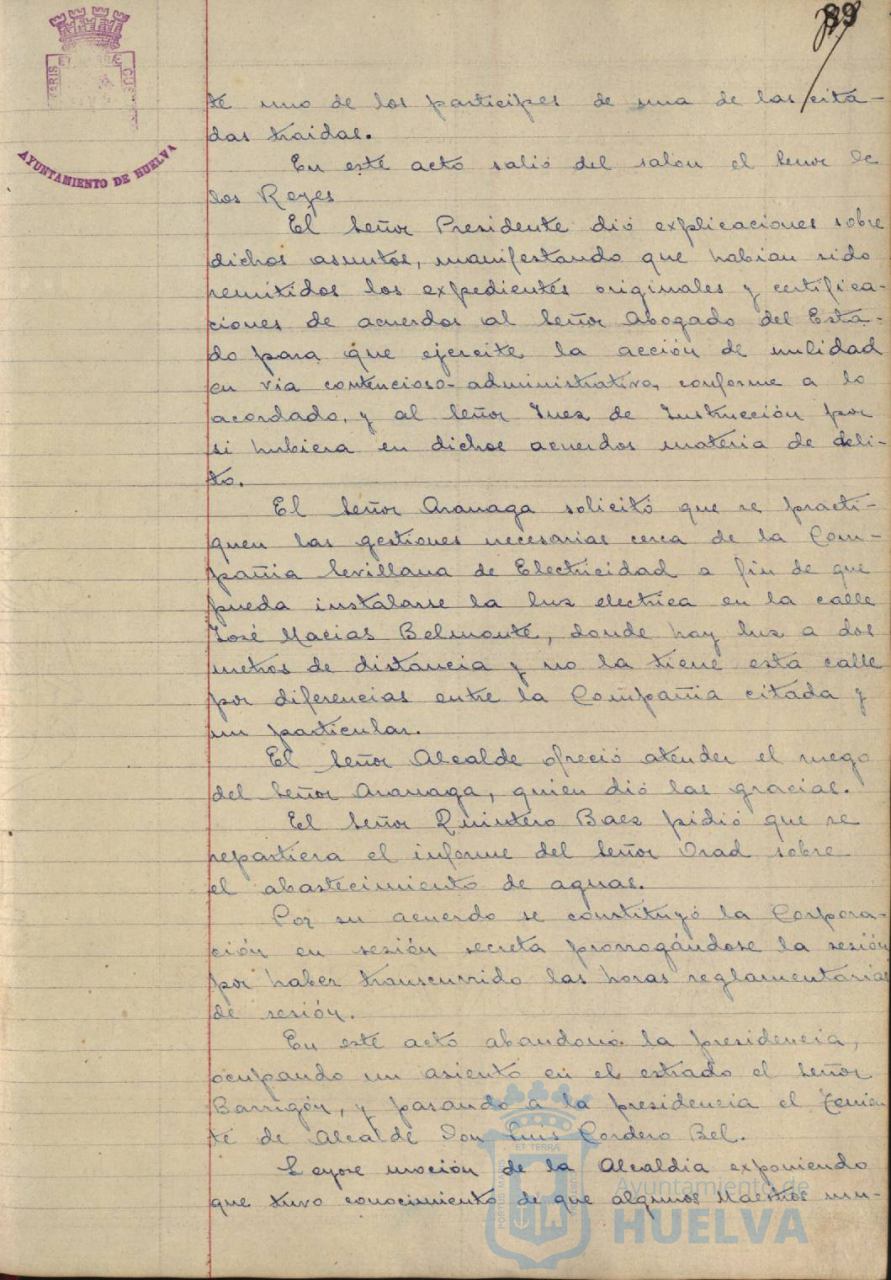 89
AYUNTAMIENTO DE HUELVA
te uno de los participes de una de las cita-
das traidas.
En este acto salió del salon el Señor de
los Reyes
El Señor Presidente dió explicaciones sobre
dichos asuntos, manifestando que habian sido
remitidos los expedientes originales y certifica-
ciones de acuerdos al Señor Abogado del Esta-
do para que ejercite la acción de nulidad
en via contencioso-administrativa, conforme a lo
acordado, y al Señor Juez de Instrucción por
si hubiera en dichos acuerdos materia de deli-
to.
El Señor Aranaga solicitó que se practi-
quen las gestiones necesarias cerca de la Com-
pañia Sevillana de Electricidad a fin de que
pueda instalarse la luz electrica en la calle
José Macias Belmonte, donde hay luz a dos
metros de distancia y no la tiene esta calle
por diferencias entre la Compañia citada y
un particular.
El Señor Alcalde ofreció atender el ruego
del Señor Aranaga, quien dió las gracias.
El Señor Quintero Baez pidió que se
repartiera el informe del Señor Orad sobre
el abastecimiento de aguas.
Por su acuerdo se constituyó la Corpora-
ción en sesión secreta prorrogándose la sesión
por haber transcurrido las horas reglamentarias
de sesión.
En este acto abandonó la presidencia,
ocupando un asiento en el estrado el Señor
Barrigón, y pasando a la presidencia el Tenien-
te de Alcalde Don Luis Cordero Bel.
Leyose moción de la Alcaldia exponiendo
que tuvo conocimiento de que algunos Maestros mu-
Ayuntamiento de
HUELVA